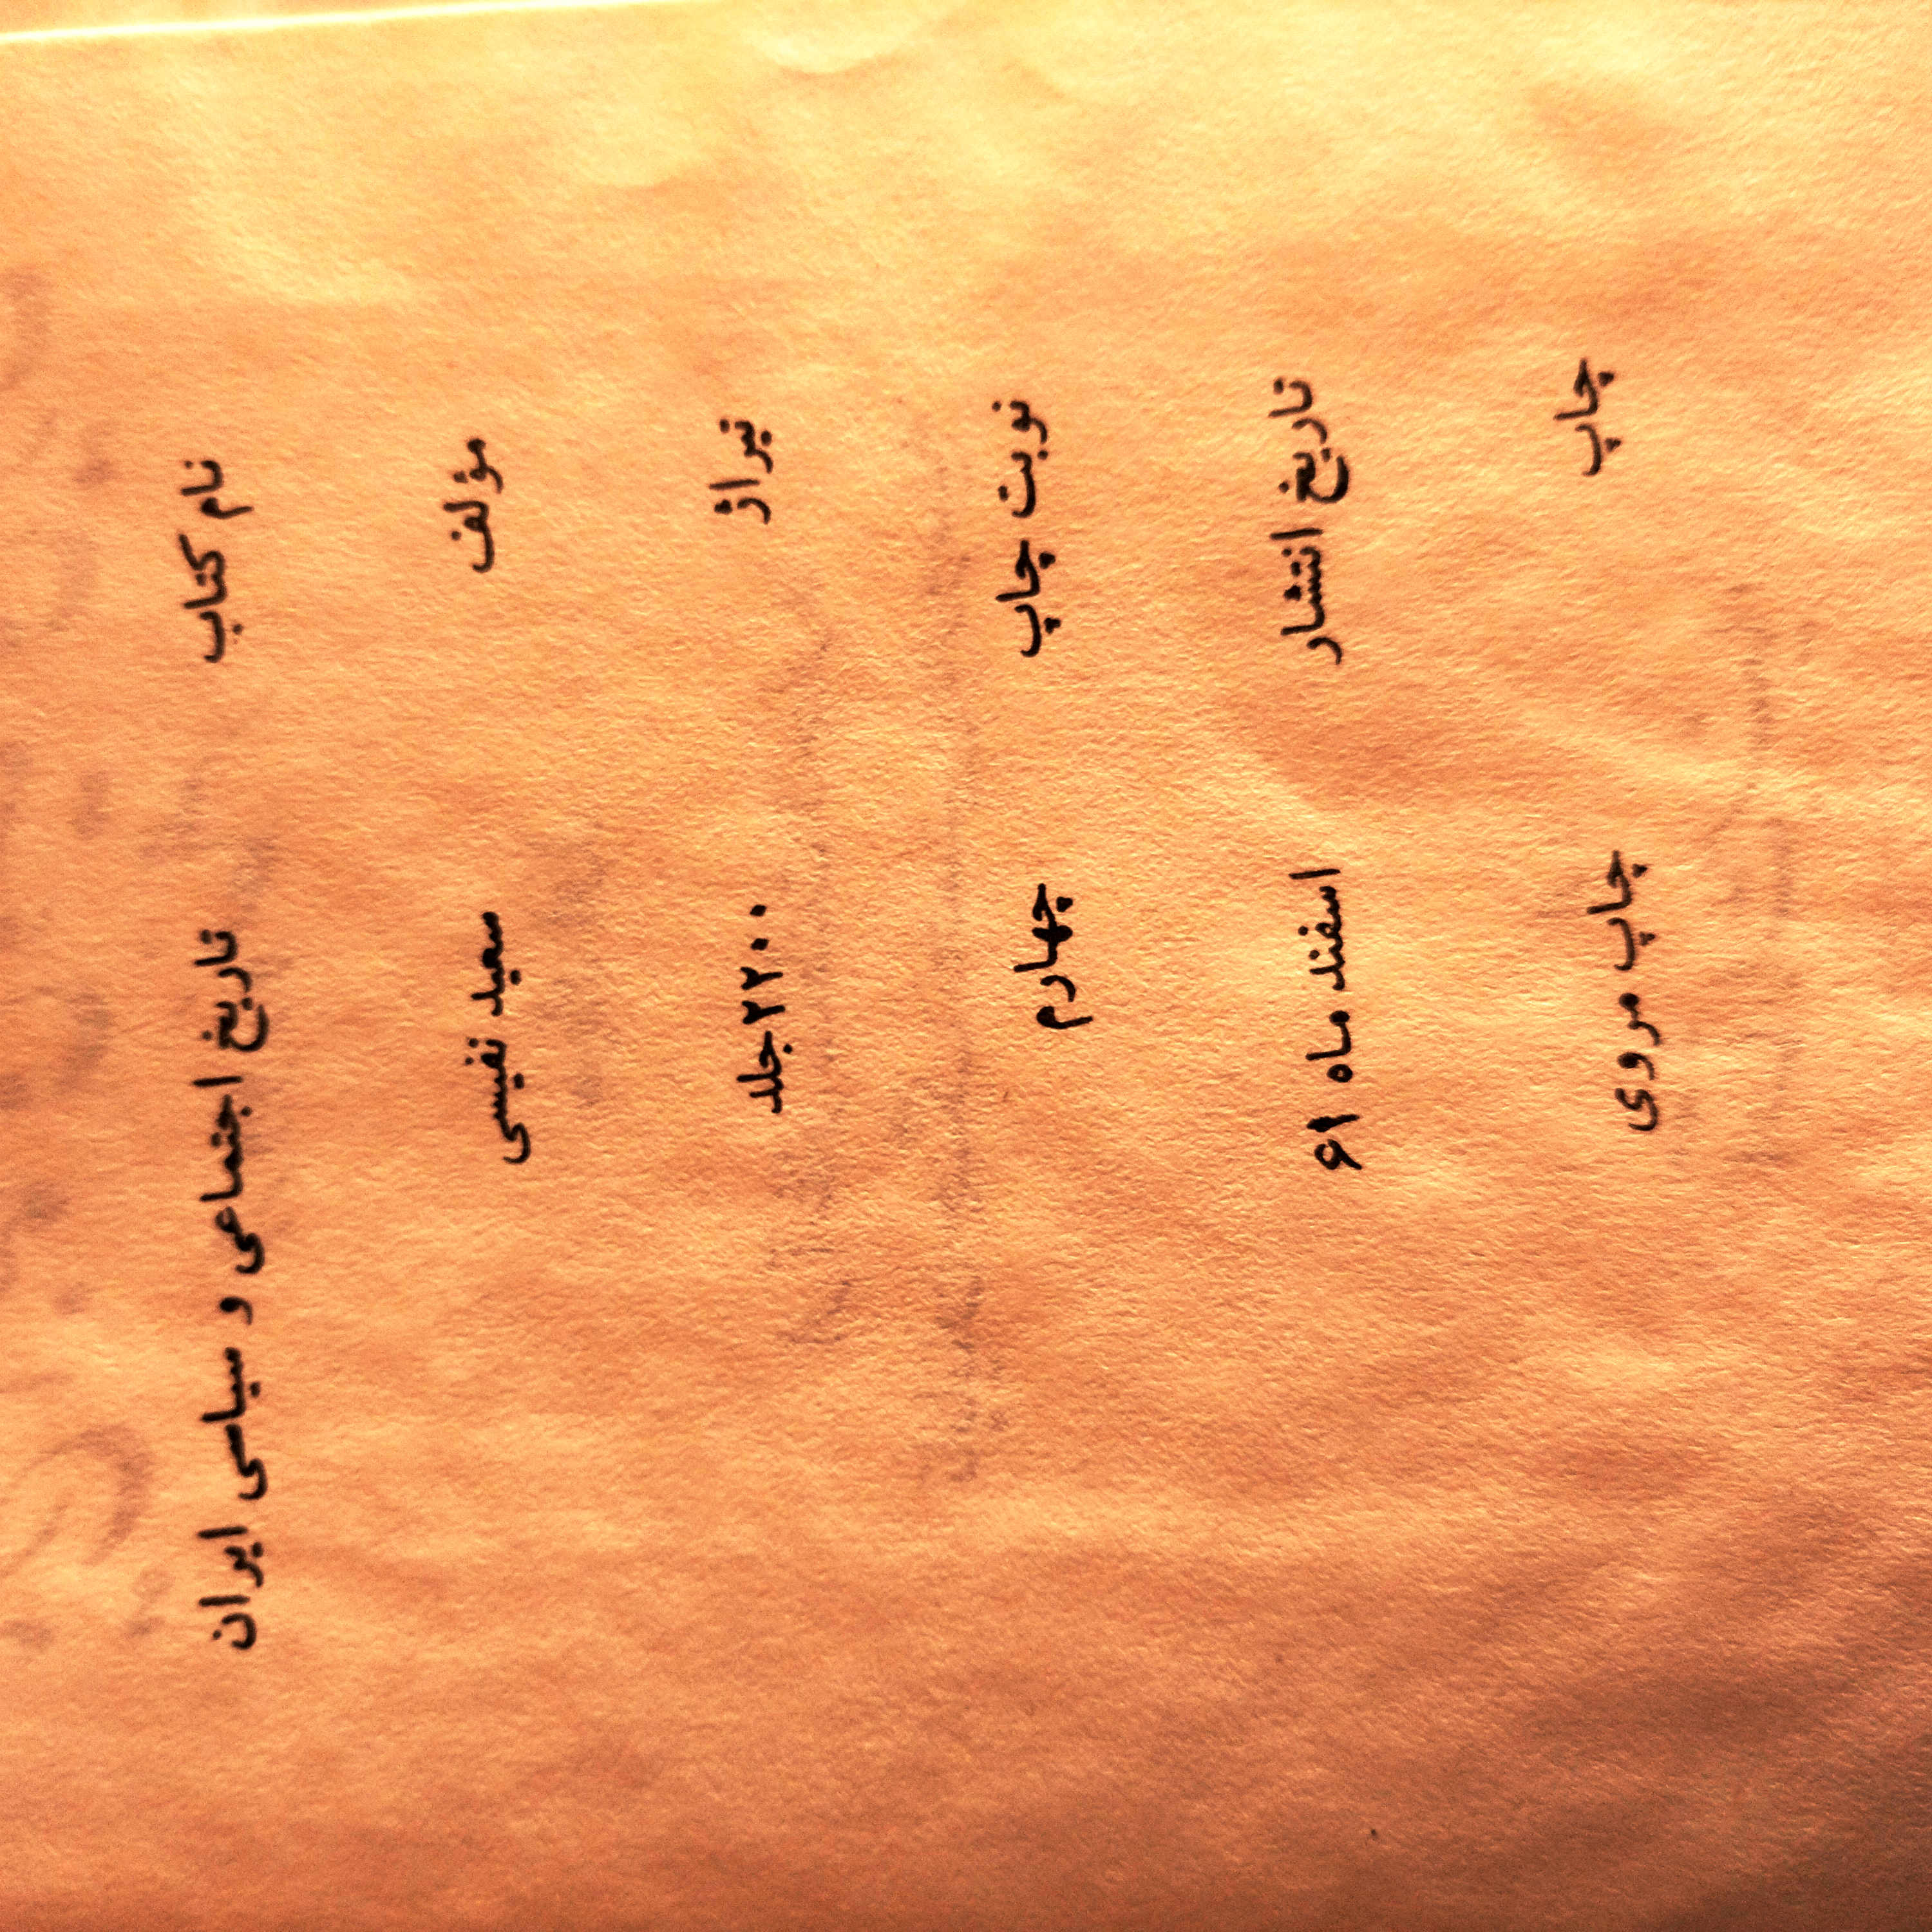 نام کتاب تاریخ اجتماعی و سیاسی ایران
مؤلف سعید نفیسی
تیراژ ۲۲۰۰ جلد
نوبت چاپ چهارم
تاریخ انتشار اسفند ماه ۶۱
چاپ چاپ مروی